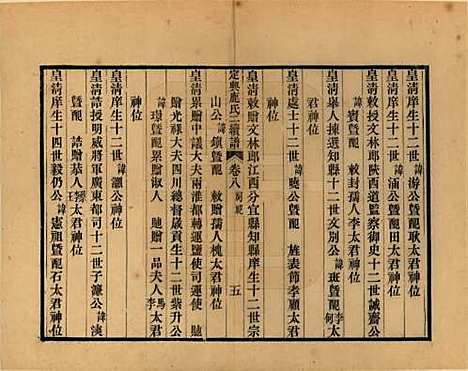 皇清庠生十二世 諱 滿公暨配田太君神位
皇清敕授文林郎陝西道監察御史十二世誠齋公
諱 賓公暨配耿太君神位
敕封孺人李太君神位
皇清舉人揀選知縣十二世文別公 諱 班暨配 李何 太
君神位
皇清處士十二世 諱 聰公暨配 旌表節孝顧太君神位
皇清敕贈文林郎江西分宜縣知縣庠生十二世宗
定興鹿氏二續譜 卷八 祠祀 五
山公 諱 鎮暨配 敕贈孺人槐太君神位
皇清累贈中議大夫兩淮都轉運鹽使司運使 貤
贈光祿大夫四川總督歲貢生十二世紫升公
諱 環暨配累贈淑人 貤贈一品夫人 馬李 太君
神位
皇清庠生十二世 諱 灝公神位
皇清誥授明威將軍廣東都司十二世子濂公 諱 淡
暨配 誥贈恭人 王 太君神位
皇清庠生十四世毅仍公 諱 憲祖暨配石太君神位